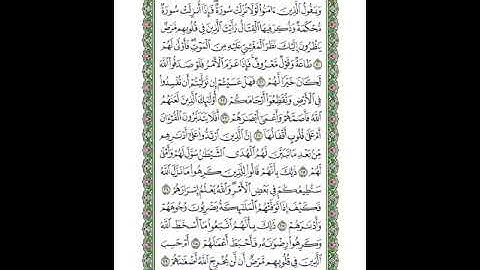 وَيَقُولُ ٱلَّذِينَ ءَامَنُوا۟ لَوْلَا نُزِّلَتْ سُورَةٌ ۖ فَإِذَآ أُنزِلَتْ سُورَةٌ
مُّحْكَمَةٌ وَذُكِرَ فِيهَا ٱلْقِتَالُ ۙ رَأَيْتَ ٱلَّذِينَ فِى قُلُوبِهِم مَّرَضٌ
يَنظُرُونَ إِلَيْكَ نَظَرَ ٱلْمَغْشِىِّ عَلَيْهِ مِنَ ٱلْمَوْتِ ۖ فَأَوْلَىٰ لَهُمْ
﴿٢٠﴾ طَاعَةٌ وَقَوْلٌ مَّعْرُوفٌ ۚ فَإِذَا عَزَمَ ٱلْأَمْرُ فَلَوْ صَدَقُوا۟ ٱللَّهَ
لَكَانَ خَيْرًا لَّهُمْ ﴿٢١﴾ فَهَلْ عَسَيْتُمْ إِن تَوَلَّيْتُمْ أَن تُفْسِدُوا۟
فِى ٱلْأَرْضِ وَتُقَطِّعُوٓا۟ أَرْحَامَكُمْ ﴿٢٢﴾ أُو۟لَٰٓئِكَ ٱلَّذِينَ لَعَنَهُمُ
ٱللَّهُ فَأَصَمَّهُمْ وَأَعْمَىٰٓ أَبْصَٰرَهُمْ ﴿٢٣﴾ أَفَلَا يَتَدَبَّرُونَ ٱلْقُرْءَانَ
أَمْ عَلَىٰ قُلُوبٍ أَقْفَالُهَآ ﴿٢٤﴾ إِنَّ ٱلَّذِينَ ٱرْتَدُّوا۟ عَلَىٰٓ أَدْبَٰرِهِم
مِّنۢ بَعْدِ مَا تَبَيَّنَ لَهُمُ ٱلْهُدَى ۙ ٱلشَّيْطَٰنُ سَوَّلَ لَهُمْ وَأَمْلَىٰ
لَهُمْ ﴿٢٥﴾ ذَٰلِكَ بِأَنَّهُمْ قَالُوا۟ لِلَّذِينَ كَرِهُوا۟ مَا نَزَّلَ ٱللَّهُ
سَنُطِيعُكُمْ فِى بَعْضِ ٱلْأَمْرِ ۖ وَٱللَّهُ يَعْلَمُ إِسْرَارَهُمْ ﴿٢٦﴾
فَكَيْفَ إِذَا تَوَفَّتْهُمُ ٱلْمَلَٰٓئِكَةُ يَضْرِبُونَ وُجُوهَهُمْ
وَأَدْبَٰرَهُمْ ﴿٢٧﴾ ذَٰلِكَ بِأَنَّهُمُ ٱتَّبَعُوا۟ مَآ أَسْخَطَ ٱللَّهَ
وَكَرِهُوا۟ رِضْوَٰنَهُۥ فَأَحْبَطَ أَعْمَٰلَهُمْ ﴿٢٨﴾ أَمْ حَسِبَ
ٱلَّذِينَ فِى قُلُوبِهِم مَّرَضٌ أَن لَّن يُخْرِجَ ٱللَّهُ أَضْغَٰنَهُمْ ﴿٢٩﴾